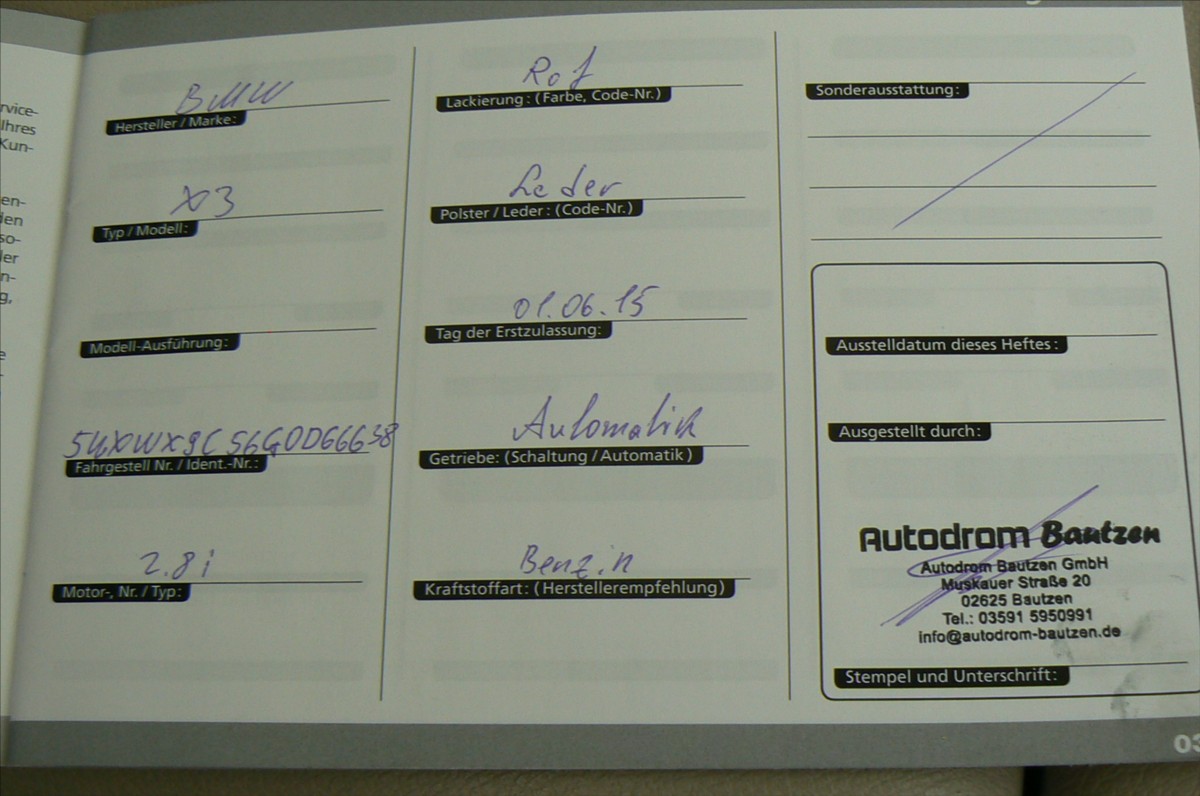 rvice-
Ihres
Kun-
en-
den
so-
der
n-
g,
BMW
Hersteller / Marke:
X3
Typ / Modell:
Modell-Ausführung:
5UXWX9C56G0D66638
Fahrgestell Nr. / Ident.-Nr.:
2.8i
Motor-, Nr. / Typ:
Rot
Lackierung: (Farbe, Code-Nr.)
Leder
Polster / Leder: (Code-Nr.)
01.06.15
Tag der Erstzulassung:
Automatik
Getriebe: (Schaltung / Automatik)
Benzin
Kraftstoffart: (Herstellerempfehlung)
Sonderausstattung:
Ausstelldatum dieses Heftes:
Ausgestellt durch:
Autodrom Bautzen
Autodrom Bautzen GmbH
Muskauer Straße 20
02625 Bautzen
Tel.: 03591 5950991
info@autodrom-bautzen.de
Stempel und Unterschrift:
03